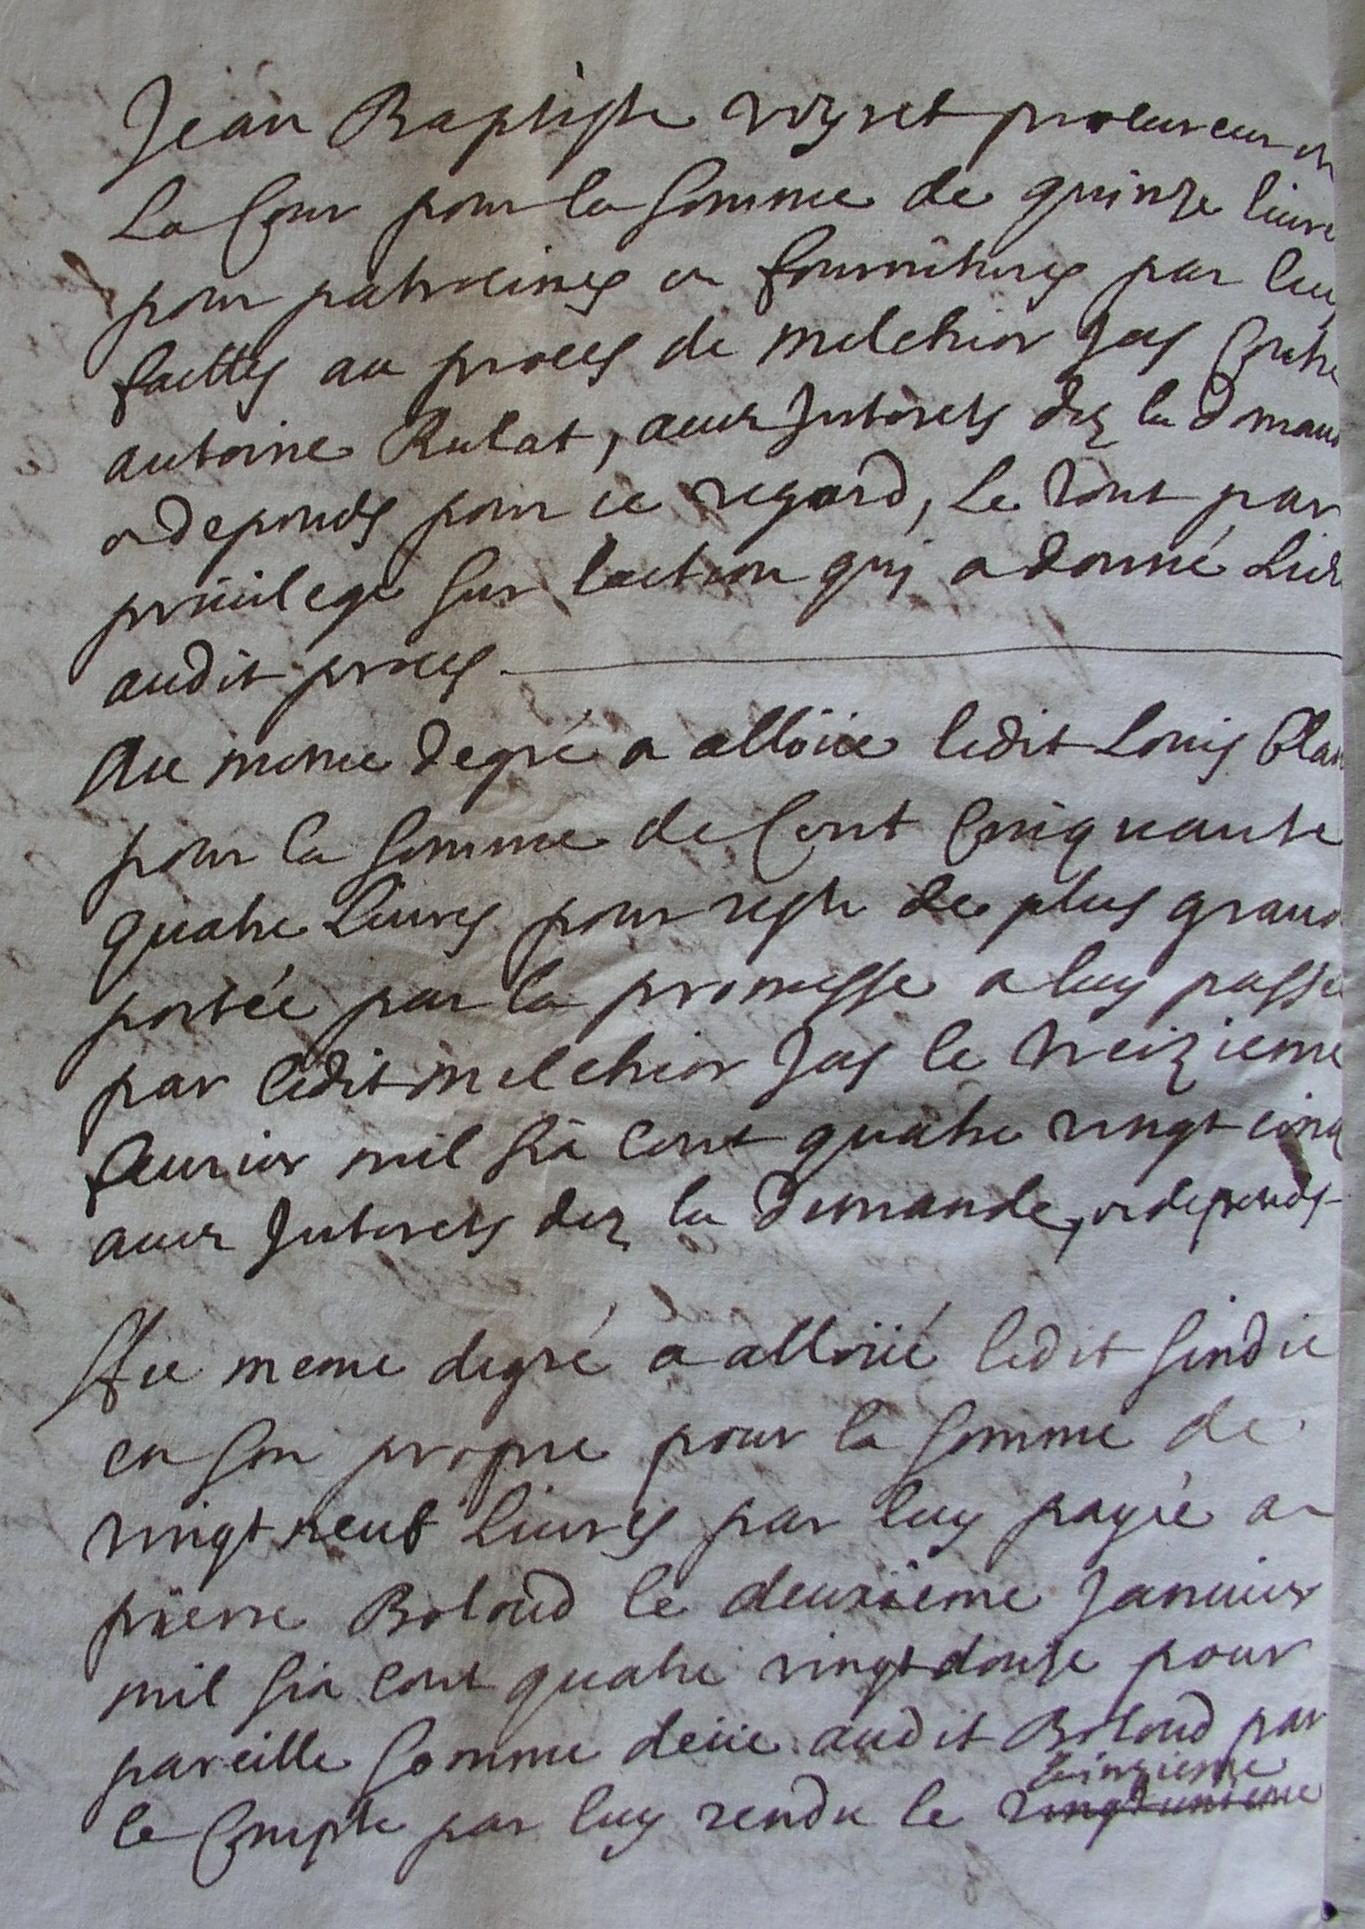 Jean Baptiste voyret procureur en
La Cour pour la somme de quinze livre
pour patrocines et fournitures par luy
faittes au proces de melchior Jas Contre
antoine Rulat, avec Interets dez la demand
et depends pour ce regard, Le tout par
privilege sur laction quj a donné Lieu
audit proces
Au meme degré a alloüé ledit Louis Blan
pour la somme de Cent Cinquante
quatre Livres pour reste de plus grand
portée par la promesse a luy passé
par ledit melchior Jas le treizieme
feurier mil six cent quatre vingt cinq
avec Interets dez la demande, et depends
Au meme degré a alloüé ledit sindic
en son propre pour la somme de
vingt neuf Livres par luy payée a
pierre Boloud le deuxiëme Januier
mil six cent quatre vingt douze pour
pareille somme deüe audit Boloud par
quinzieme
le Compte par luy rendu le vingtunieme